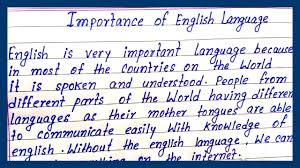 Importance of English Language
English is very important language because
in most of the Countries on the World
it is spoken and understood. People from
different parts of the World having differen
languages as their mother tongues are able
to communicate easily With knowledge of
english. Without the english language, We can
on the internet.